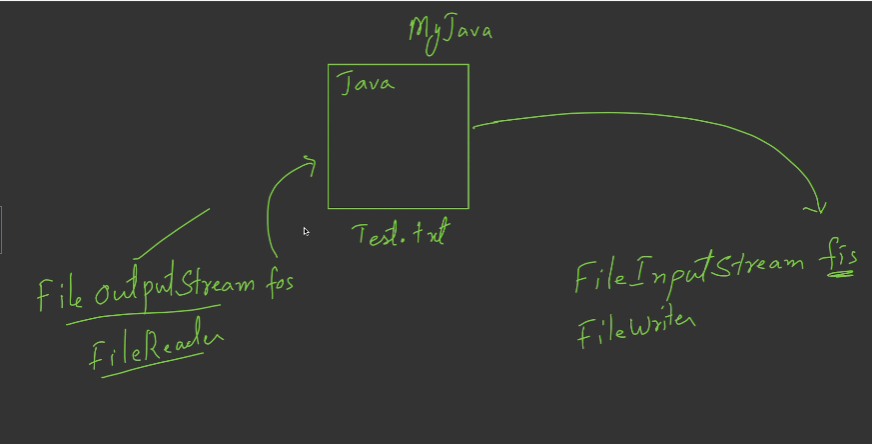 MyJava
Java
Test.txt
File OutputStream fos
FileReader
FileInputStream fis
FileWriter